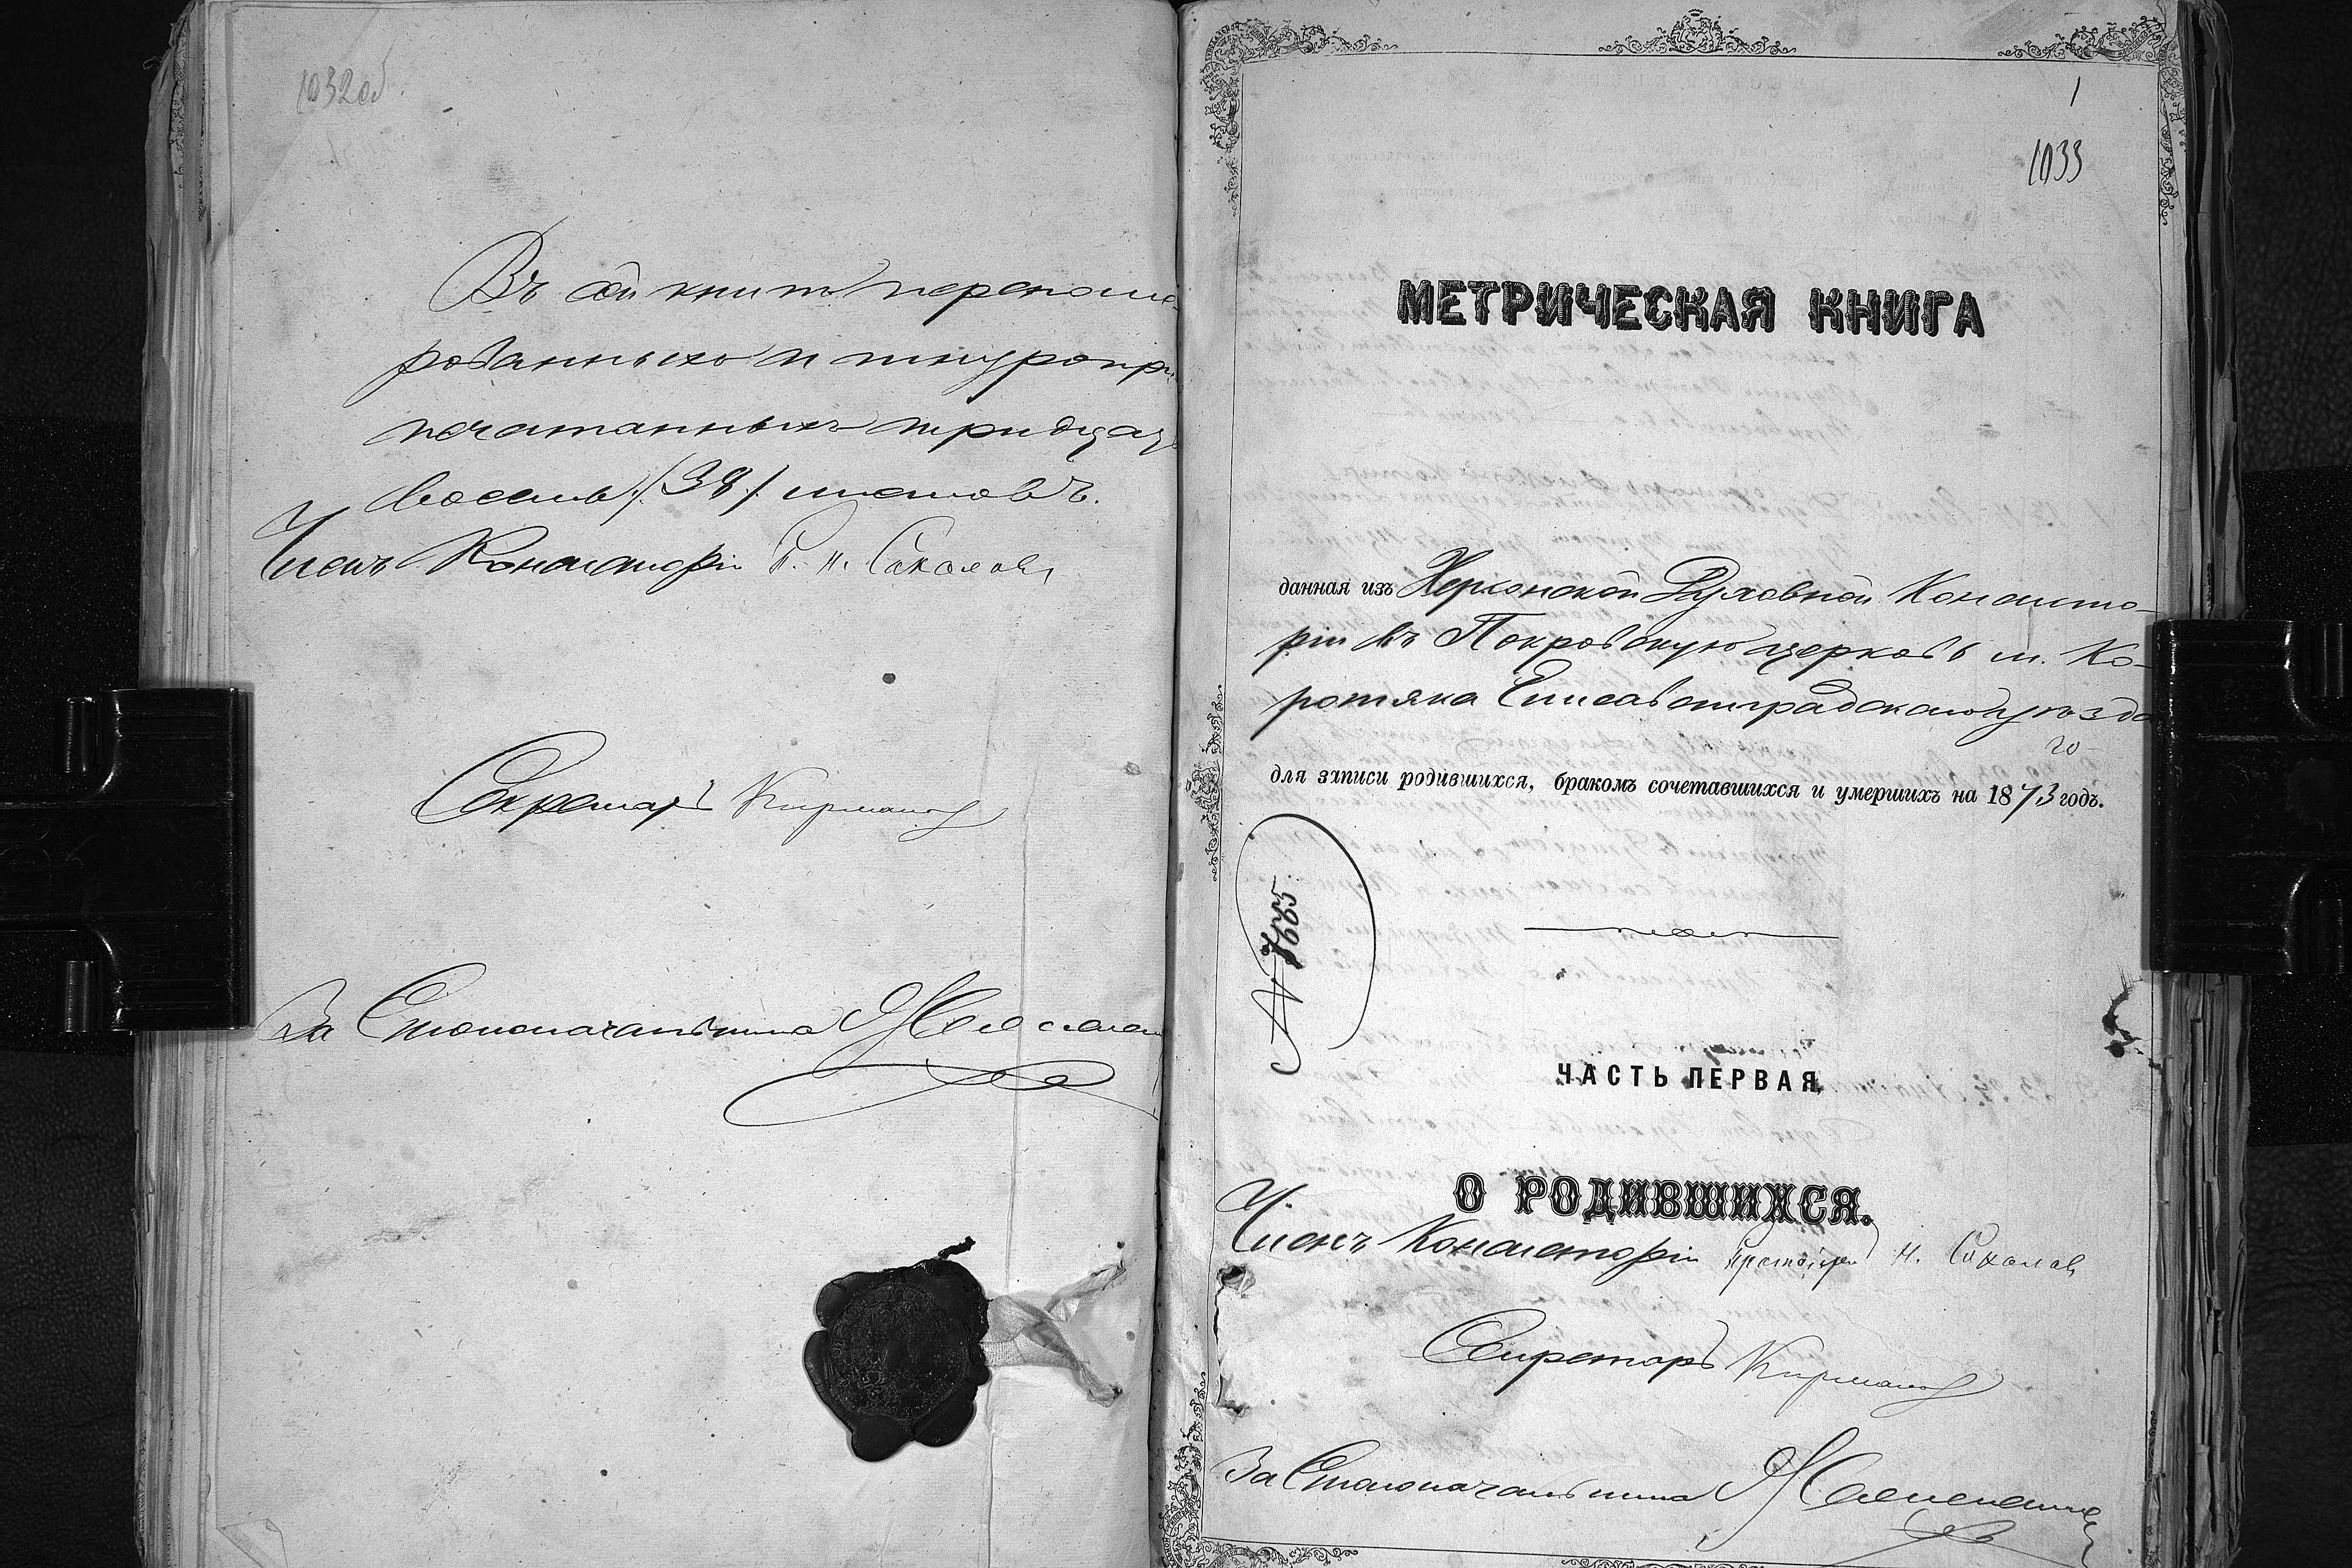 1032об
Въ сей книгѣ перенуме-
рованныхъ и шнуропри
печатанныхъ тридцать
восемь /38/ листовъ.
Членъ Консисторіи П. Н. Соколовъ
Секретарь
За Столоначальника
1
1033
МЕТРИЧЕСКАЯ КНИГА
данная изъ Херсонской Духовной Консисто-
ріи въ Покровскую церковь м. Ко-
ротяка Елисаветградскаго уѣзда
го
для записи родившихся, бракомъ сочетавшихся и умершихъ на 1873 годъ.
№ 7665
ЧАСТЬ ПЕРВАЯ,
О РОДИВШИХСЯ.
Членъ Консисторіи Протоіерей Н. Соколовъ
Секретарь
За Столоначальника